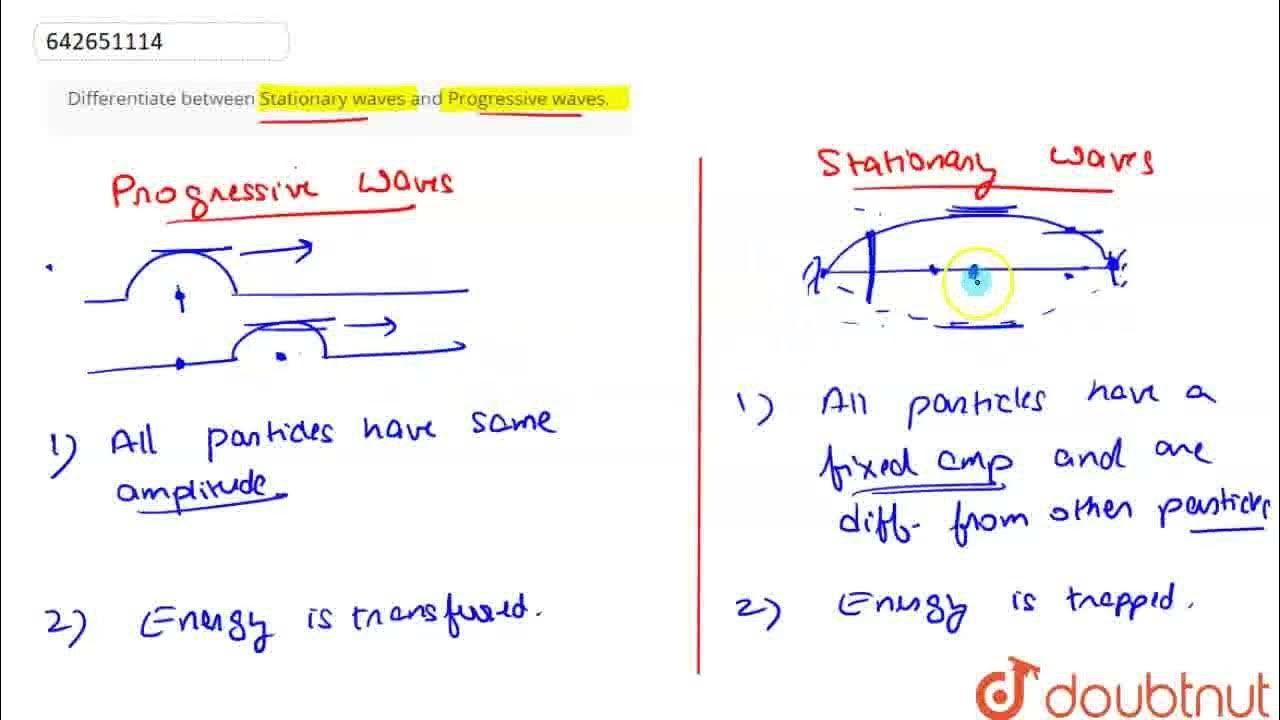 642651114
Differentiate between Stationary waves and Progressive waves.
Progressive waves
1) All particles have same
amplitude
2) Energy is transfused.
Stationary waves
1) All particles have a
fixed amp and are
diff. from other particles
2) Energy is trapped.
doubtnut